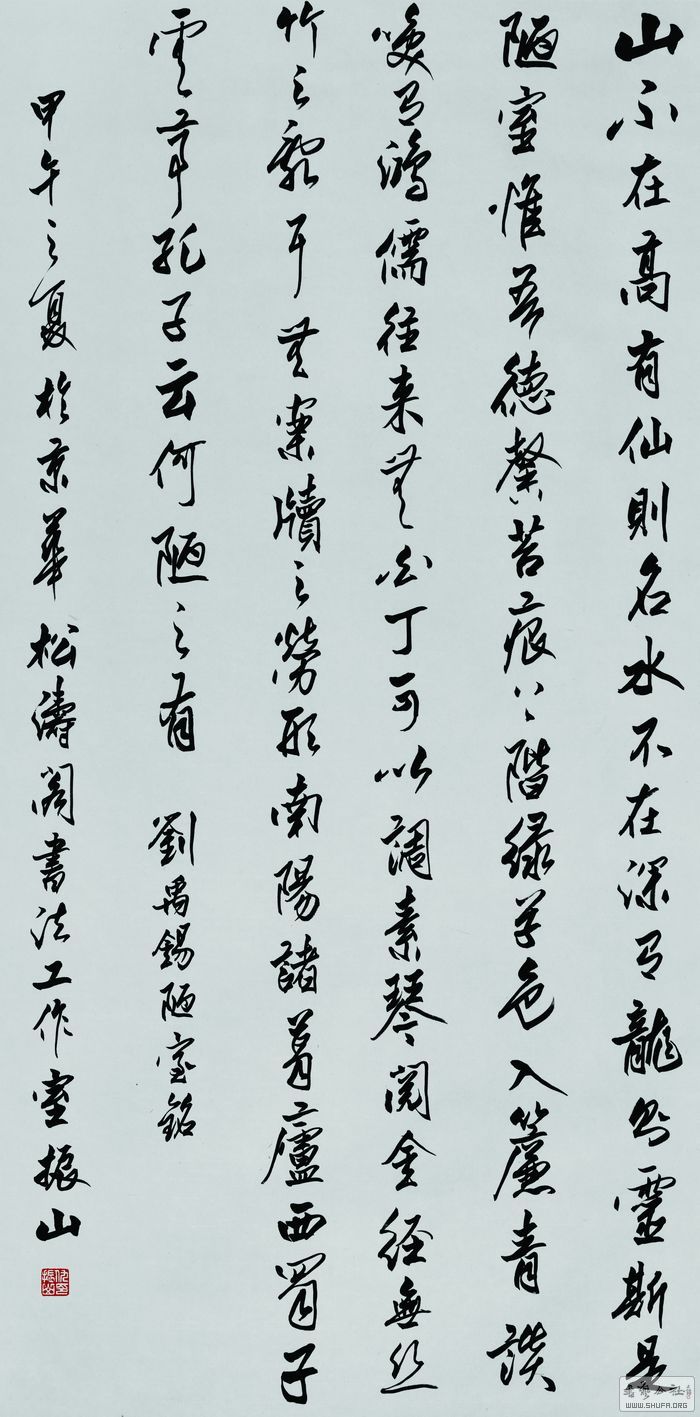 山不在高有仙則名水不在深有龍則靈斯是
陋室惟吾德馨苔痕上階緑草色入簾青談
咲有鴻儒往來無白丁可以調素琴閱金經無絲
竹之亂耳無案牘之勞形南陽諸葛廬西蜀子
雲亭孔子云何陋之有 劉禹錫陋室銘
甲午之夏於京華松濤閣書法工作室振山
WWW.SHUFA.ORG